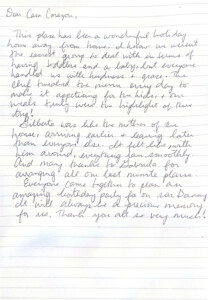 Dear Casa Corazon,
This place has been a wonderful holiday
home away from home. I know we weren't
the easiest group to deal with in terms of
having toddlers and a baby, but everyone
handled us with kindness & grace. The
chef tweaked the menu every day to
make it appetizing for the kids & our
meals truly were the highlight of this
trip!
Gilberto was like the mother of the
house, arriving earlier & leaving later
than everyone else. It felt like with
him around, everything ran smoothly.
And many thanks to Gabriela for
arranging all our last minute plans.
Everyone came together to plan an
amazing birthday party for our son Danny
It will always be a precious memory
for us. Thank you all so very much!